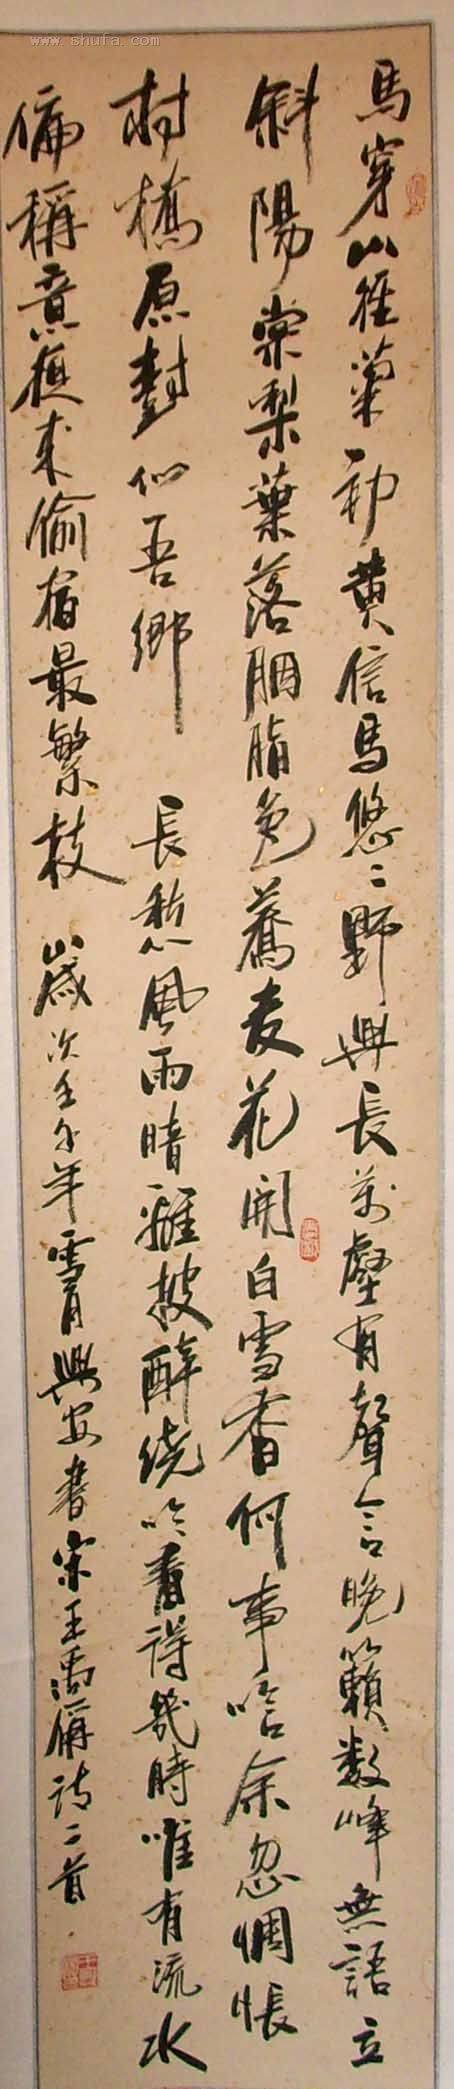 www.shufa.com
馬穿山徑菊初黃信馬悠〻野興長萬壑有聲含晚籟数峰無語立
斜陽棠梨葉落胭脂色蕎麥花開白雪香何事吟余忽惆悵
村橋原樹似吾鄉 長愁風雨暗離披醉繞吟看得幾時唯有流水
偏稱意夜來偷宿最繁枝 歲次壬午年雪月興安書宋王禹偁詩二首